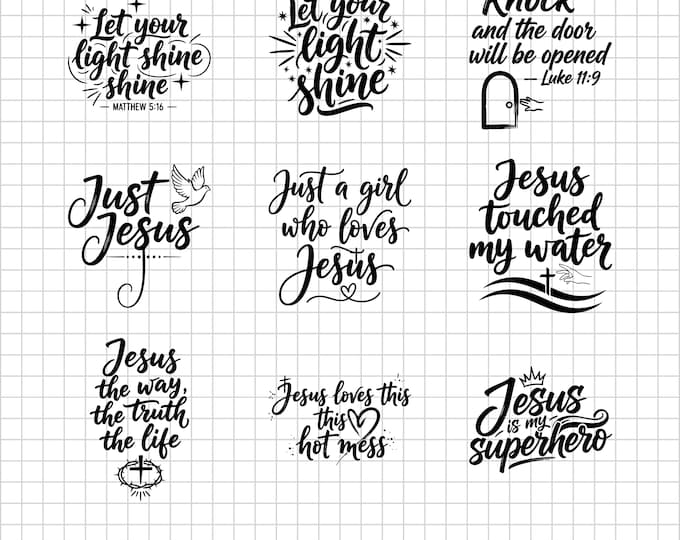 Let your
light shine
shine
MATTHEW 5:16
Let your
light
shine
Knock
and the door
will be opened
– Luke 11:9
Just
Jesus
Just a girl
who loves
Jesus
Jesus
touched
my water
Jesus
the way,
the truth
the life
Jesus loves this
this
hot mess
Jesus
is my
superhero